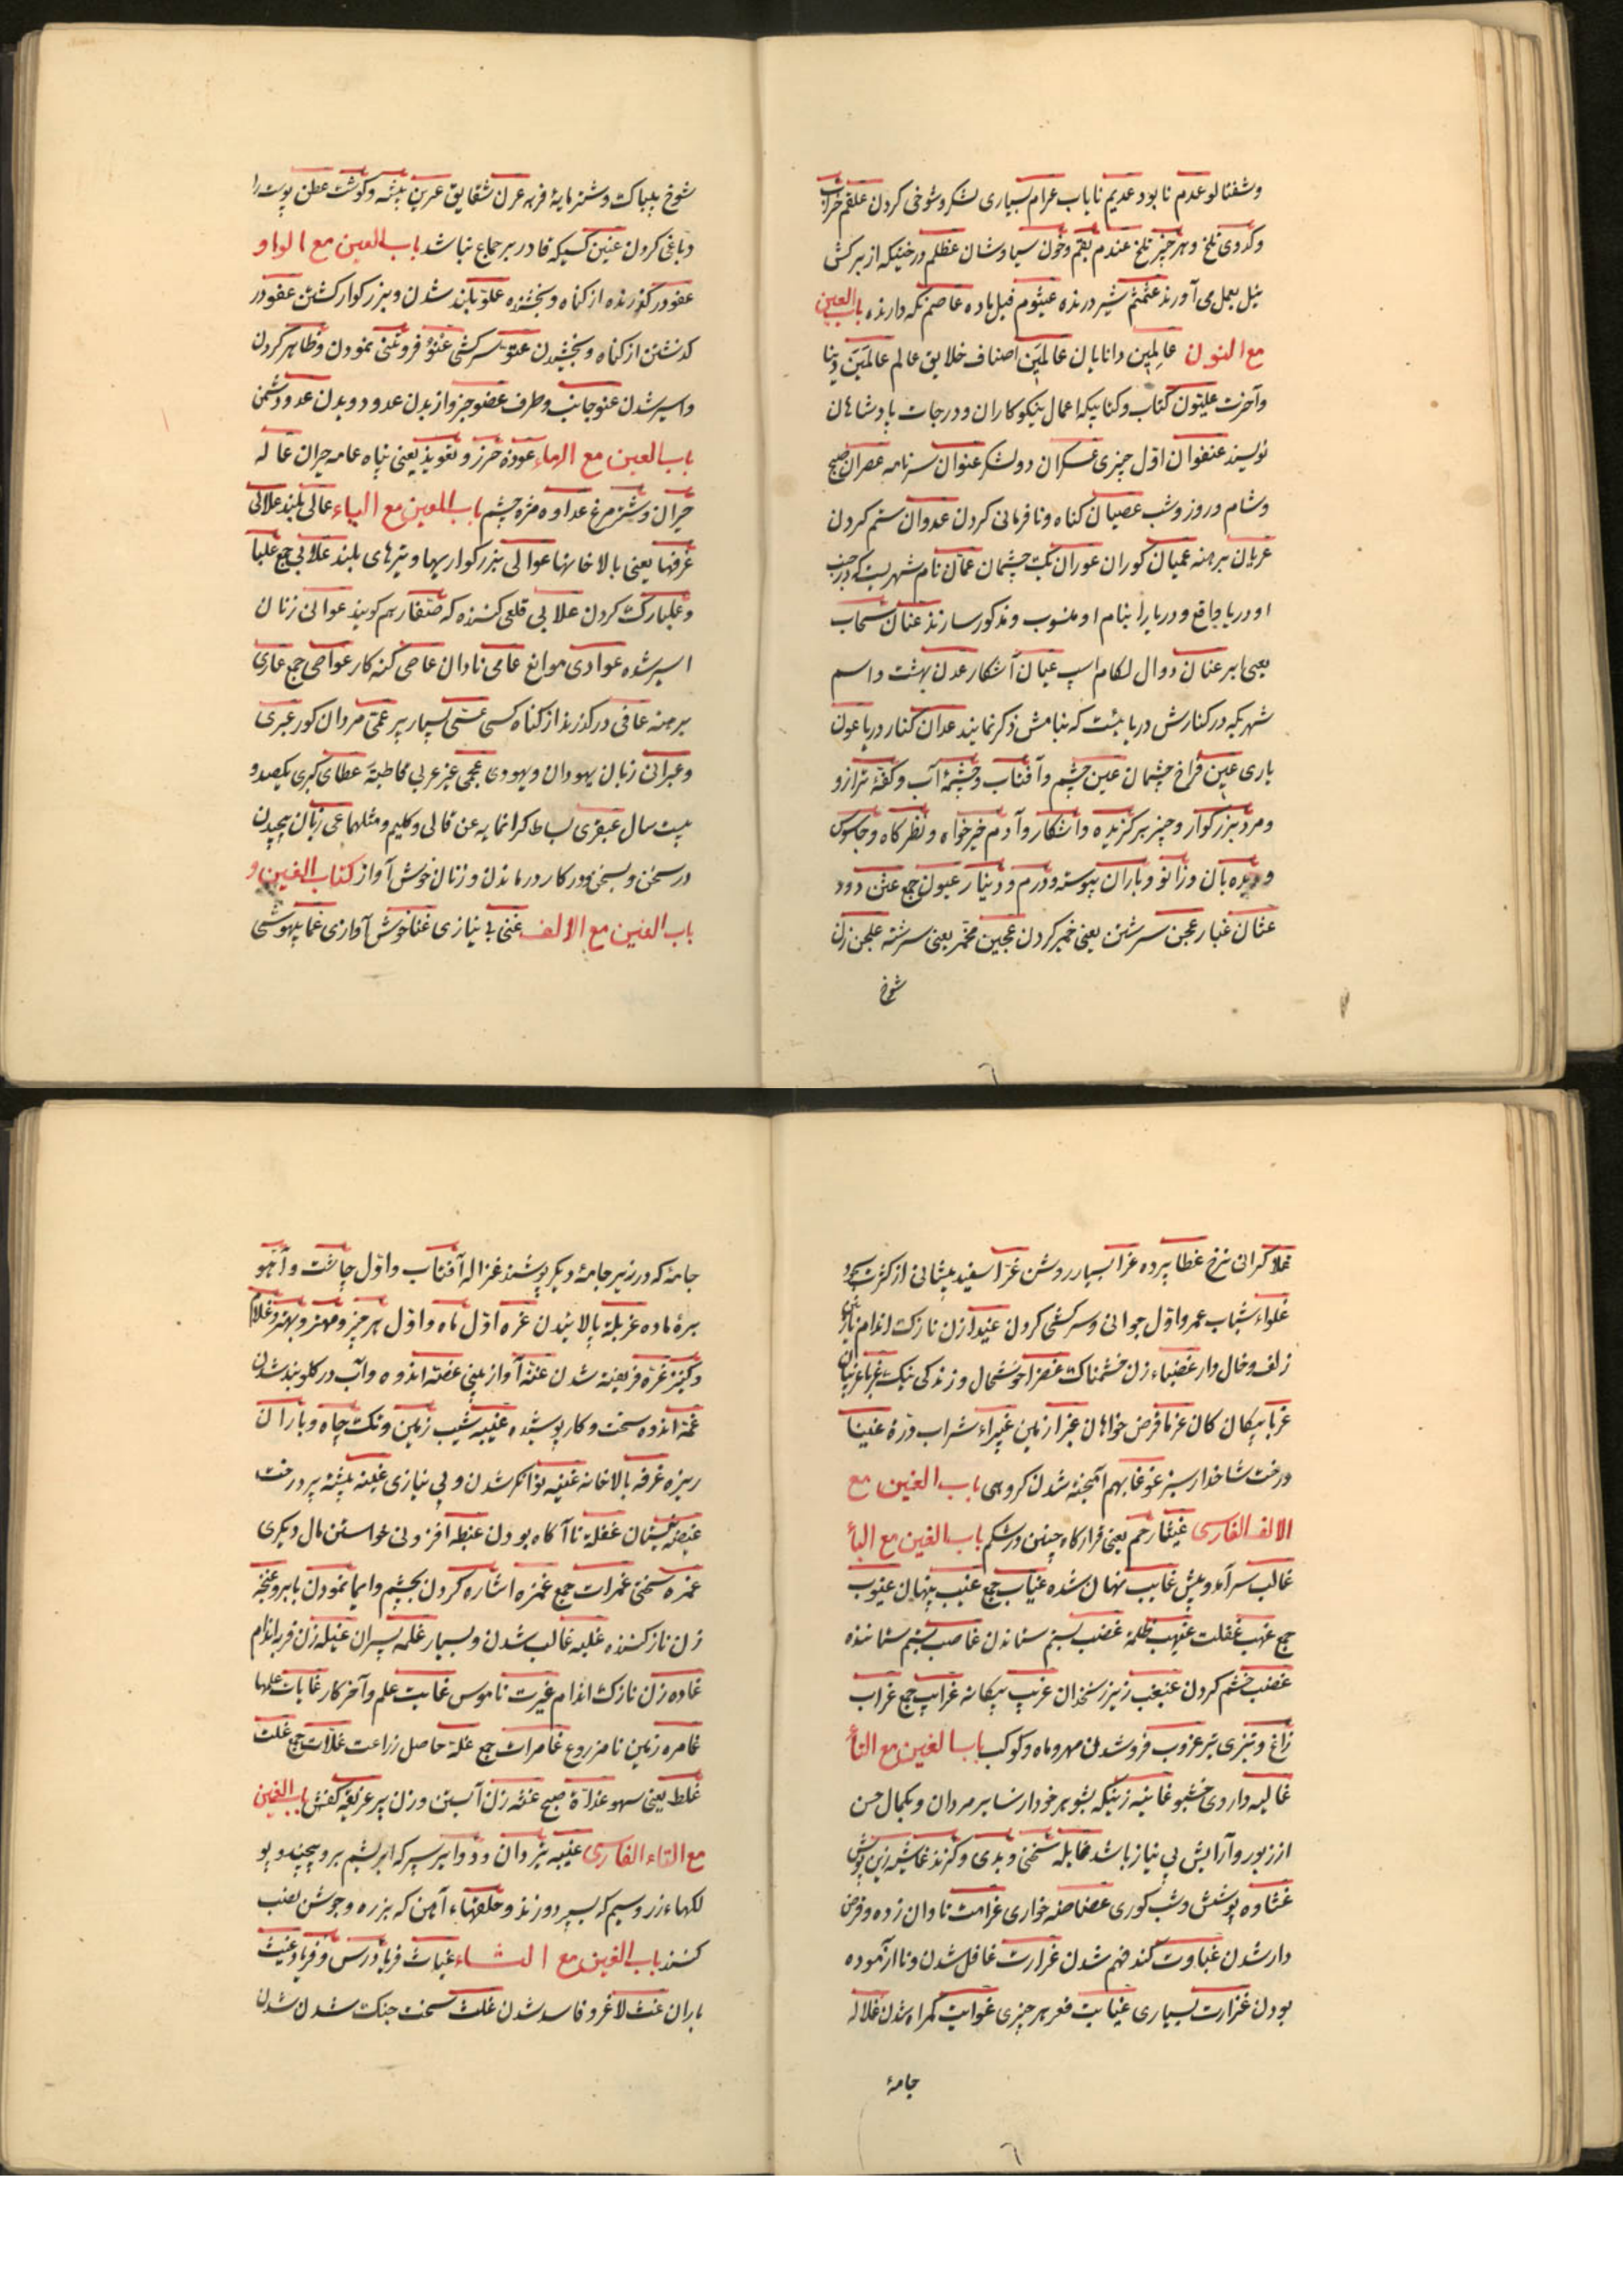 وشفتالو عدم نابود عدیم نایاب عرام بسیاری لشکر وشوخی کردن علقم خراب
وکدوی تلخ وهر چیز تلخ عندم بقم وخون سیاوشان عظلم درختیکه از برکش
نیل بعمل می آورند عثمثم شیر درنده عیثوم فیل ماده عاصم نکه دارنده باب العین
مع النون عالِمین دانایان عالَمین اصناف خلایق عالم عالَمَین دنیا
وآخرت علیّون کتاب وکتابیکه اعمال نیکوکاران ودرجات پادشاهان
نویسند عنفوان اوّل چیزی عسکران دو لشکر عنوان سرنامه عصران صبح
وشام وروز وشب عصیان کناه ونافرمانی کردن عدوان ستم کردن
عریان برهنه عمیان کوران عوران یک چشمان عمّان نام شهریست که در جنب
او دریا واقع ودریا را بنام او منسوب ومذکور سازند عنان سحاب
یعنی ابر عنان دوال لکام اسپ عیان آشکار عدن بهشت واسم
شهریکه در کنارش دریا ئیست که بنامش ذکر نمایند عدان کنار دریا عون
یاری عین فراخ چشمان عین چشم وآفتاب وچشمهٔ آب وکفّهٔ ترازو
ومرد بزرکوار وچیز برکزیده وآشکار وآدم خیرخواه ونظرکاه وجاسوس
ودیده بان وزانو وباران پیوسته ودرم ودینار عیون جمع عثن دود
عثان غبار عجن سرشتن یعنی خمیر کردن عجین مخمّر یعنی سرشته علجن زن
شوخ
شوخ بیباک وشتر مایهٔ فربه عرن شقایق عرین بیشه وکوشت عطن پوست را
دباغی کردن عنین کسیکه قادر بر جماع نباشد باب العین مع الواو
عفو در کذرنده از کناه وبخشنده علوّ بلند شدن وبزرکوار کشتن عفو در
کذشتن از کناه وبخشیدن عتوّ سرکشی عنوّ فروتنی نمودن وظاهر کردن
واسیر شدن عنو جانب وطرف عضو جزو از بدن عدو دویدن عدو دشمن
باب العین مع الهاء عوذه حرز وتعویذ یعنی پناه عامه حیران عاله
حیران وشتر مرغ عداوه مژه چشم باب العین مع الیاء عالی بلند علالی
غرفها یعنی بالاخانها عوالی بزرکواریها وتیرهای بلند علابی جمع علبا
وعلبا رک کردن علابی قلعی کننده که صفّار هم کویند عوانی زنان
اسیر شده عوادی موانع عامی نادان عاصی کنه کار عواصی جمع عاری
برهنه عافی درکذرند از کناه کسی عتی بسیار پیر عمی مردان کور عبری
وعبرانی زبان یهودان ویهودی عجمی غیر عربی مخاطبهٔ عطای کبری یکصد و
بیست سال عبقری بساط کرانمایه عن قالی وکلیم ومثلهما عی زبان پیچیدن
در سخن وبسخن ودر کار درماندن وزنان خوش آواز کتاب الغین و
باب الغین مع الالف غنی بی نیازی غنا خوش آوازی غما بیهوشی
غلا کرانی نرخ غطا پرده غرا بسیار روشن غرّا سفید پیشانی از کثرت سجود
غلواء شباب عمر واوّل جوانی وسرکشی کردن غیدا زن نازک اندام
زلف وخال دار غضباء زن خشمناک غضرا خوشحال وزندکی نیک غربا غریبان
غربا بیکان کان غرما قرض خواهان غبرا زمین غبیراء شراب ذرهٔ غینا
درخت شاخدار سبز غوغا بهم آمیخته شدن کروهی باب الغین مع
الالف الفارسی غیثا رحم یعنی قرارکاه جنین در شکم باب الغین مع البأ
غالب سرآمد وبیش غایب نهان شده غیّاب جمع غیب پنهان غیوب
جمع غیهب غفلت غیهب ظلمة غصب بستم ستاندن غاصب بستم ستاننده
غضب خشم کردن غبغب زیر زنخدان غریب بیکانه غرایب جمع غراب
زاغ وتیزی تبر غروب فرو شدن مهر وماه وکوکب باب الغین مع التأ
غالیه داروی خشبو غانیه زنیکه بشوهر خود از سایر مردان وبکمال حسن
از زیور وآرایش بی نیاز باشد غایله سختی وبدی وکزند غاشیه زین پوش
غشاوه پوشش وشب کوری غضاضه خواری غرامت تاوان زده وقرض
دار شدن غباوت کند فهم شدن غرارت غافل شدن وناآزموده
بودن غزارت بسیاری غیابت قعر هر چیزی غوایت کمراه شدن غلاله
جامهٔ
جامهٔ که در زیر جامهٔ دیکر پوشند غزاله آفتاب واوّل چاشت وآهو
برهٔ ماده غربلة پالائیدن غره اوّل ماه واوّل هر چیز ومهتر وبهتر وغلام
وکنیز غرّة فریفته شدن غنّة آواز بینی غصّه اندوه وآب در کلو بند شدن
غمّة اندوه سخت وکار پوشیده غیبه شیب زمین وتک چاه وباران
ریزه غرفه بالاخانه غنیه توانکر شدن وبی نیازی غیضه بیشه پر درخت
غیضه نیستان غفلة ناآکاه بودن غبطه افزونی خواستن مال دیکری
غمره سختی غمرات جمع غمزه اشاره کردن بچشم وایما نمودن بابرو غنجه
زن نازکننده غلبه غالب شدن وبسیار غلمه پسران غیله زن فربه اندام
غاده زن نازک اندام غیرت ناموس غایت علم وآخر کار غایات علمها
غامره زمین نامزروع غامرات جمع غلّة حاصل زراعت غلّات جمع غلت
غلط یعنی سهو غداة صبح غثه زن آبستن وزن پیر غریفه کفش باب الغین
مع التاء الفارسی غیبه تیردان ودوایر سپر که ابریشم برو پیچند وپو
لکهاء زر وسیم که بسپر دوزند وحلقهاء آهن که بزره وجوشن نصب
کنند باب الغین مع الثاء غیاث فریادرس وفریاد غیث
باران غث لاغر وفاسد شدن غلث سخت جنک شدن شدن